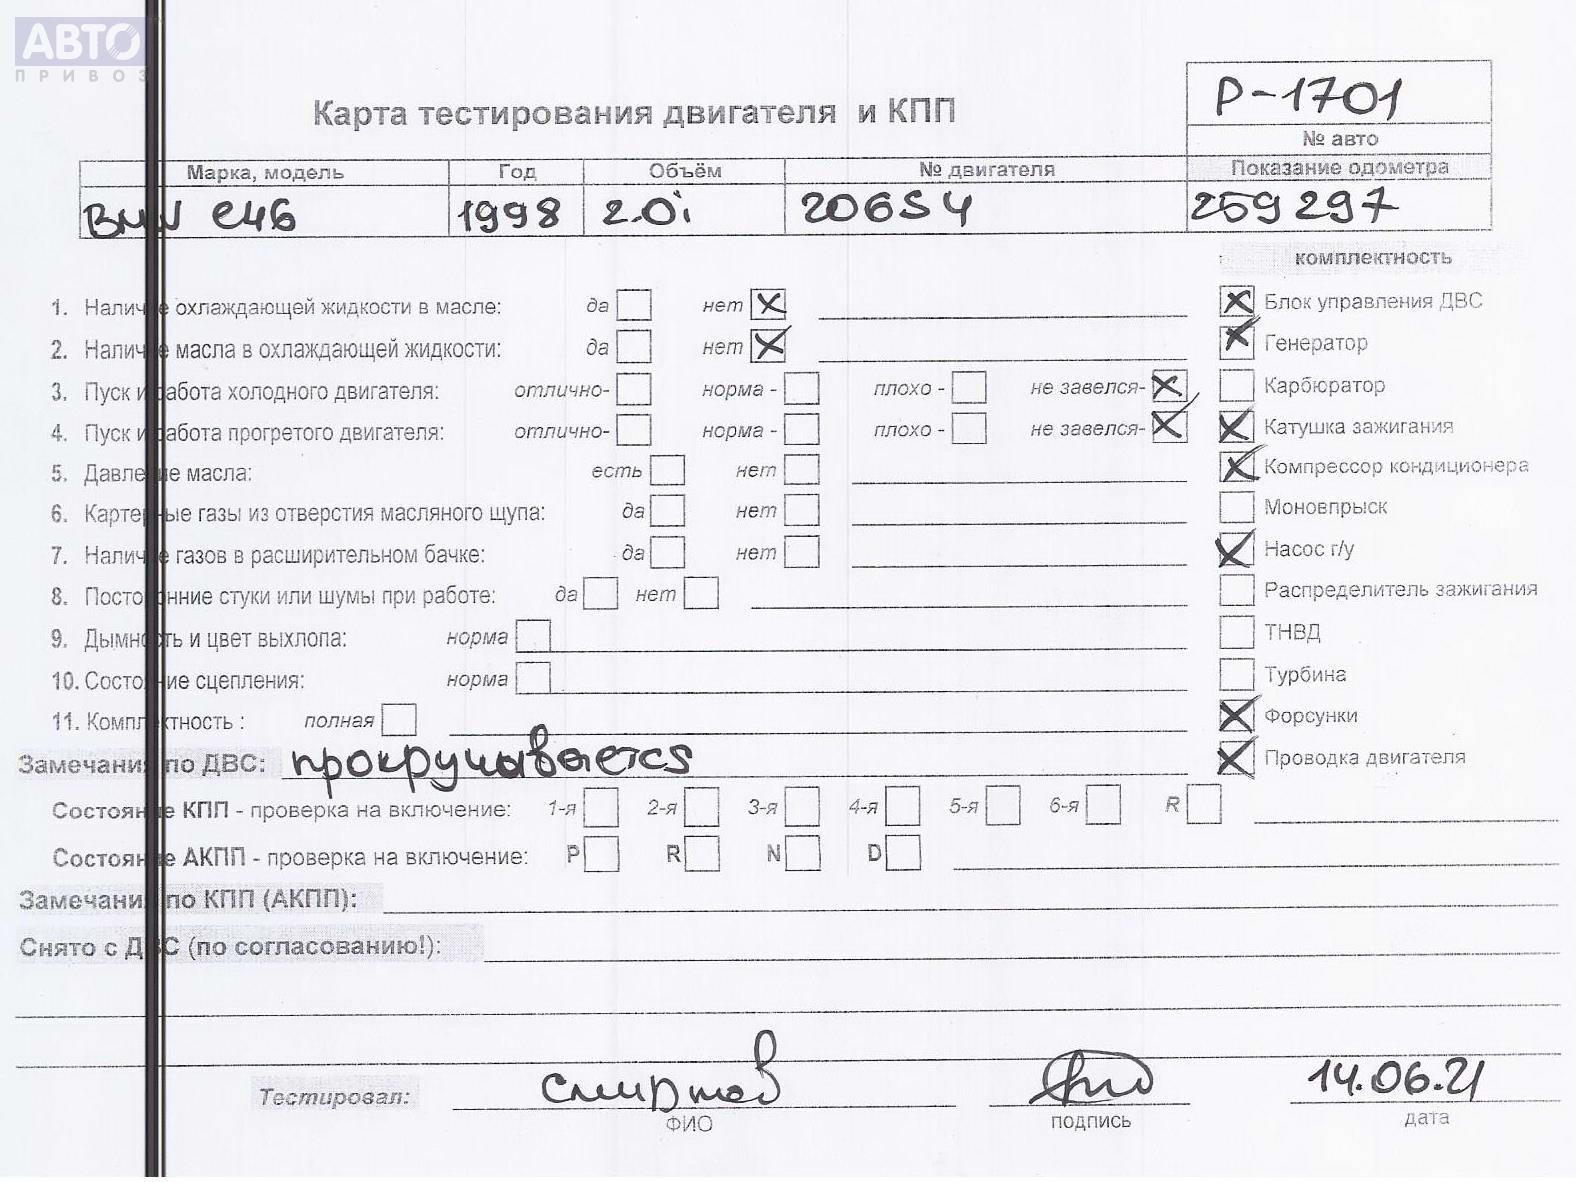 АВТО
ПРИВОЗ
Карта тестирования двигателя и КПП
Р-1701
№ авто
Марка, модель Год Объём № двигателя Показание одометра
BMW e46 1998 2.0i 206S4 259297
комплектность
1. Наличие охлаждающей жидкости в масле: да нет Блок управления ДВС
2. Наличие масла в охлаждающей жидкости: да нет Генератор
3. Пуск и работа холодного двигателя: отлично- норма - плохо - не завелся- Карбюратор
4. Пуск и работа прогретого двигателя: отлично- норма - плохо - не завелся- Катушка зажигания
5. Давление масла: есть нет Компрессор кондиционера
6. Картерные газы из отверстия масляного щупа: да нет Моновпрыск
7. Наличие газов в расширительном бачке: да нет Насос г/у
8. Посторонние стуки или шумы при работе: да нет Распределитель зажигания
9. Дымность и цвет выхлопа: норма ТНВД
10. Состояние сцепления: норма Турбина
11. Комплектность : полная Форсунки
Замечания по ДВС: прокручивается Проводка двигателя
Состояние КПП - проверка на включение: 1-я 2-я 3-я 4-я 5-я 6-я R
Состояние АКПП - проверка на включение: P R N D
Замечания по КПП (АКПП):
Снято с ДВС (по согласованию!):
Тестировал: Смирнов 14.06.21
ФИО подпись дата